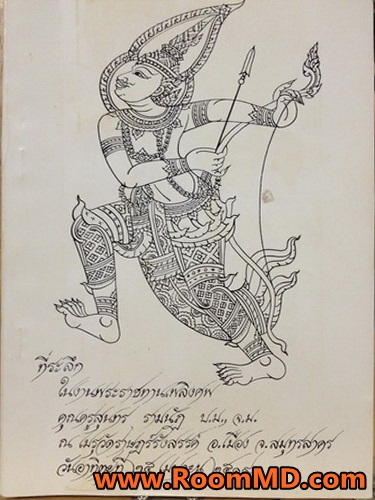 www.RoomMD.com
ที่ระลึก
ในงานพระราชทานเพลิงศพ
คุณครูสุนทร รามนัฏ บ.ม., จ.ม.
ณ เมรุวัดราษฎร์รังสรรค์ อ.เมือง จ.สมุทรสาคร
วันอาทิตย์ที่
www.RoomMD.com